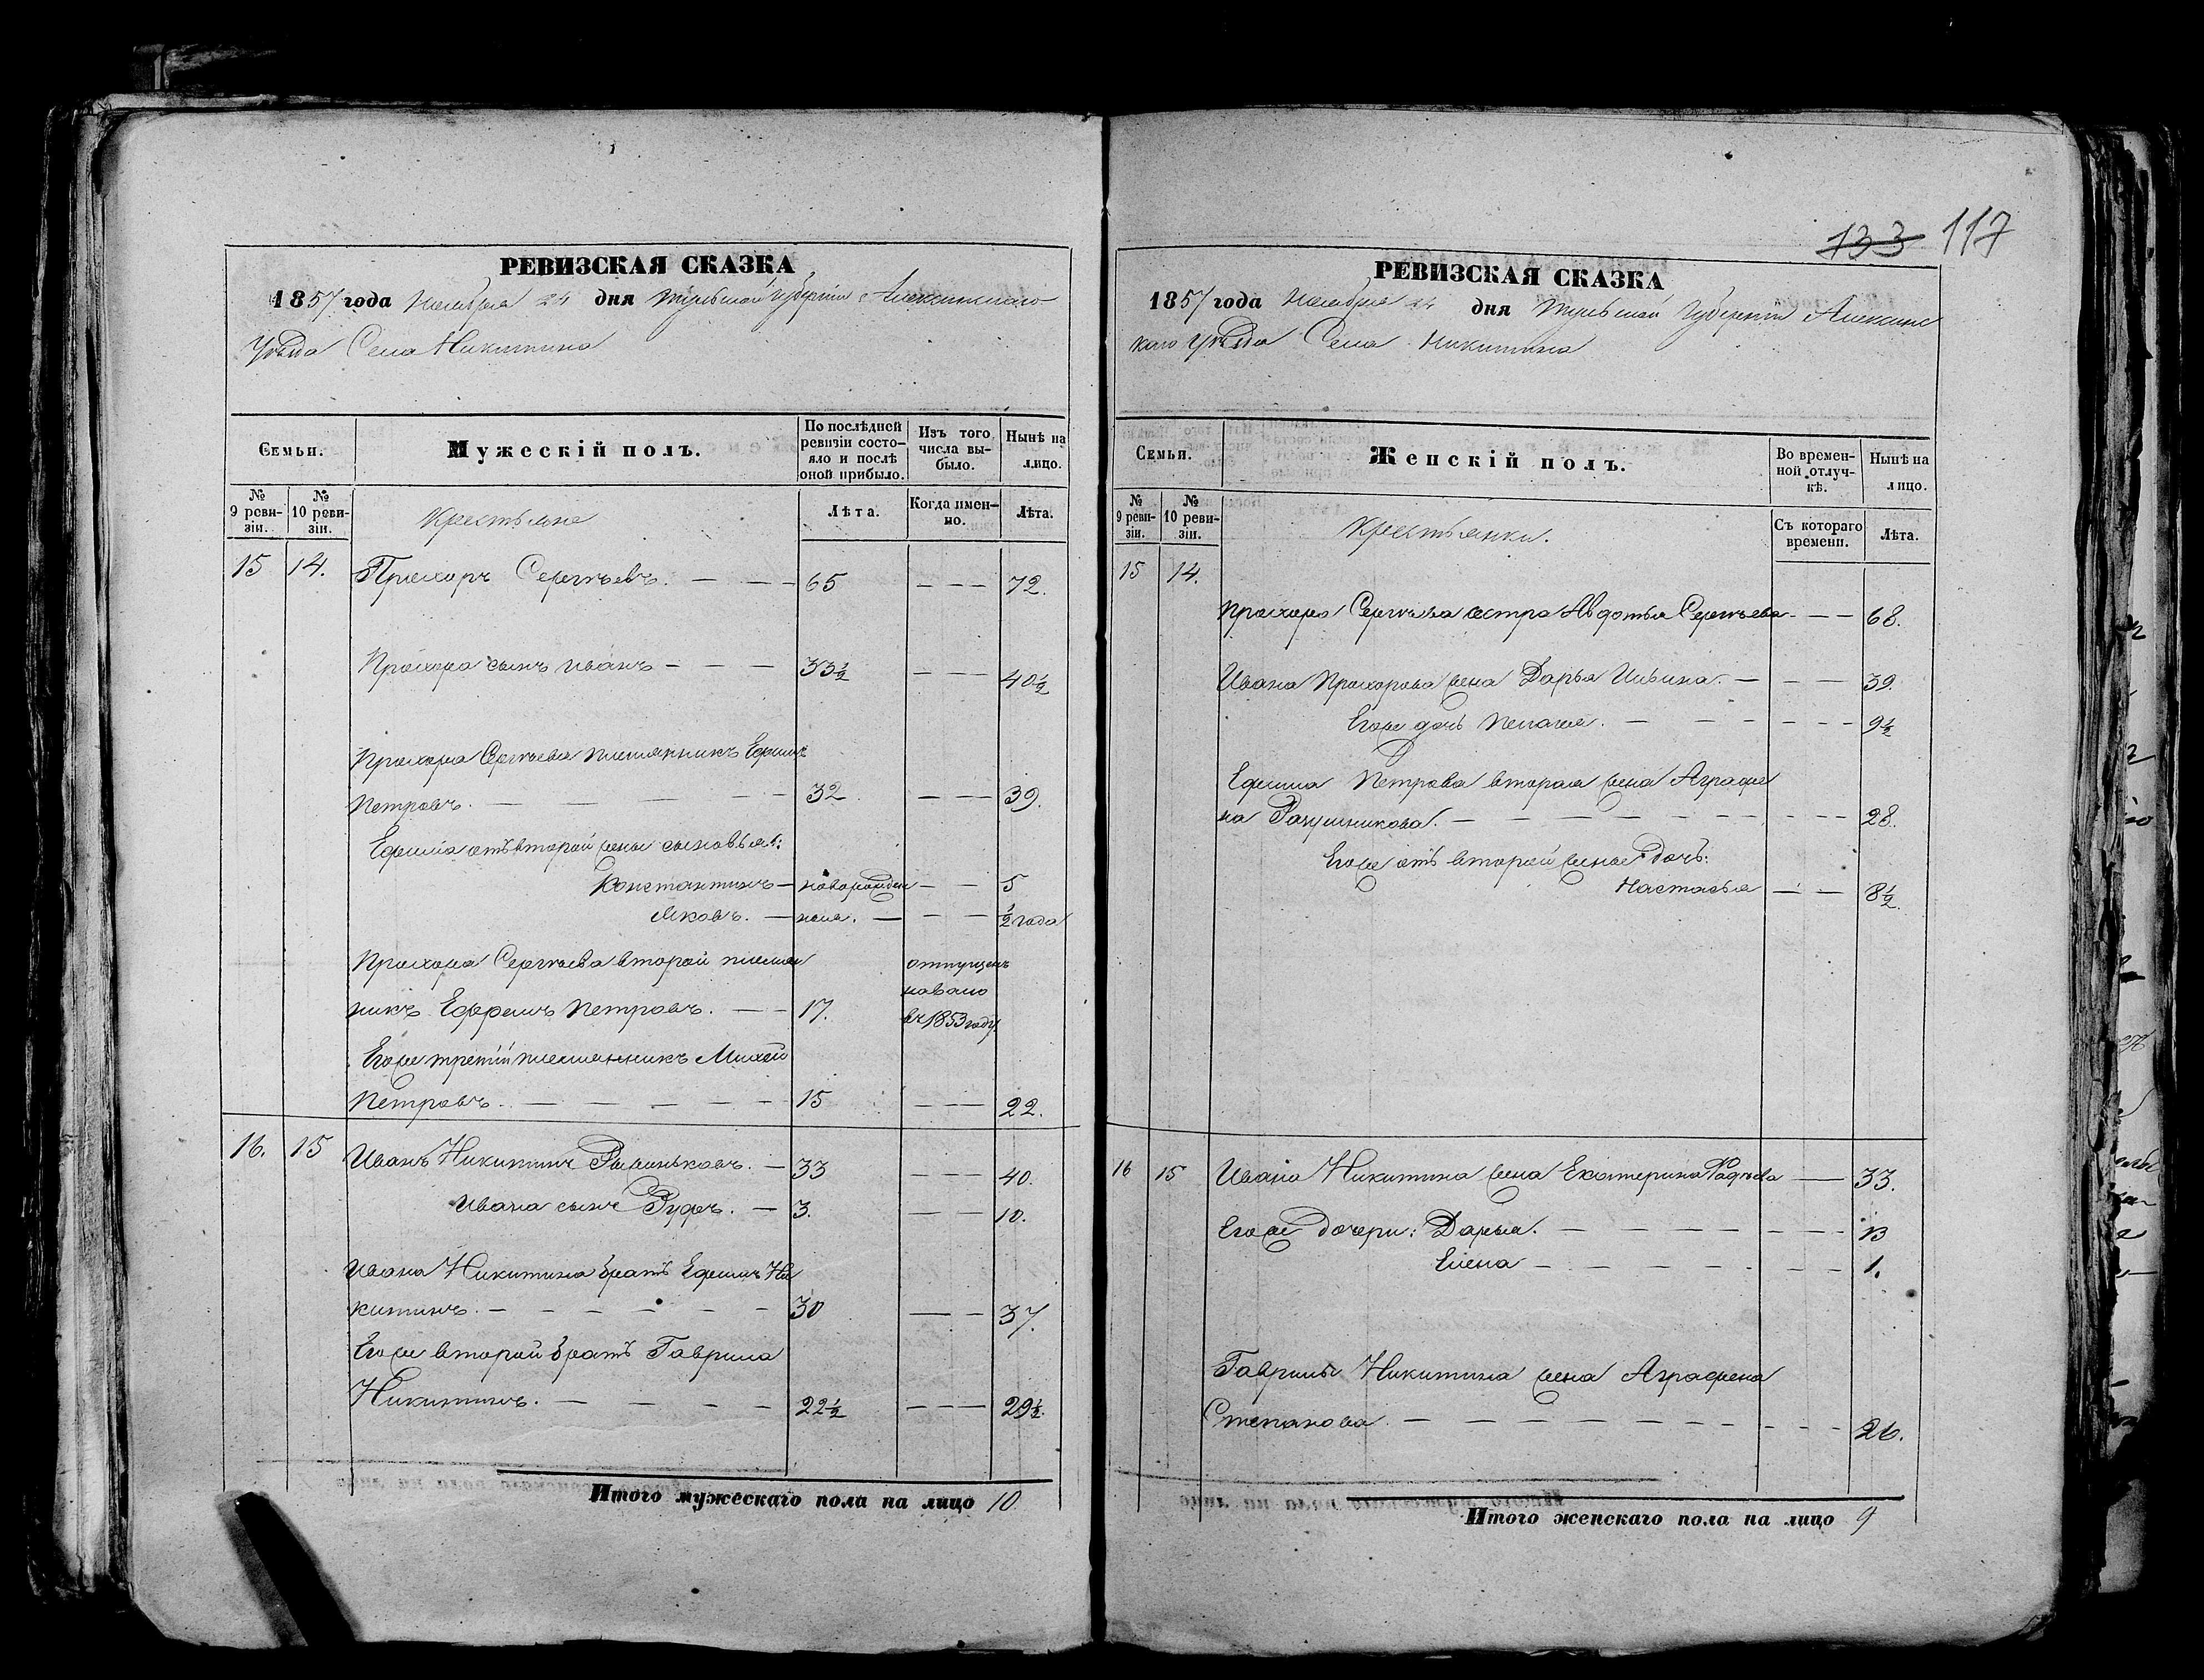 133 117
РЕВИЗСКАЯ СКАЗКА
1857 года Ноября 24 дня Тульской Губернии Алексинскаго
Уѣзда Села Никитина
Семьи.
Мужескій полъ.
По послѣдней ревизіи состояло и послѣ оной прибыло.
Изъ того числа выбыло.
Нынѣ на лицо.
№ 9 ревизіи.
№ 10 ревизіи.
Крестьяне
Лѣта.
Когда именно.
Лѣта.
15 14. Прохоръ Сергѣевъ. — — — 65 — — — 72.
Прохора сынъ Иванъ — — — 33½ — — — 40½
Прохора Сергѣева племянникъ Ефимъ
Петровъ. — — — — — 32 — — — 39.
Ефима отъ второй жены сыновья:
Константинъ — новорожден — — 5
Яковъ. — ные. — — — ½ года
Прохора Сергѣева второй племян
отпущенъ
наволю
никъ Ефремъ Петровъ. — — 17. въ 1853 году.
Егоже третій племянникъ Михей
Петровъ. — — — — — 15 — — — 22.
16. 15 Иванъ Никитинъ — 33 — — — 40.
Ивана сынъ — 3. — — 10.
Ивана Никитина братъ Ефимъ Ни
китинъ. — — — — — — 30 — — 37.
Егоже второй братъ Гаврила
Никитинъ. — — — — 22½ — — — 29½.
Итого мужескаго пола на лицо 10
РЕВИЗСКАЯ СКАЗКА
1857 года Ноября 24 дня Тульской Губерніи Алексинс
каго Уѣзда Села Никитина
Семьи.
Женскій полъ.
Во временной отлучкѣ.
Нынѣ на лицо.
№ 9 ревизіи.
№ 10 ревизіи.
Крестьянки.
Съ котораго времени.
Лѣта.
15 14.
Прохора Сергѣева сестра Авдотья Сергѣева — — — 68.
Ивана Прохорова жена Дарья Ильина. — — — 39.
Егоже дочь Пелагея. — — — — — — 9½
Ефима Петрова вторая жена Аграфе
на — — — — — — — — — — 28.
Егоже отъ второй жены дочь:
Настасья — — 8½.
16 15 Ивана Никитина жена Екатерина — 33.
Егоже дочери: Дарья. — — — — — — — 13
Елена — — — — — — — 1.
Гаврилы Никитина жена Аграфена
Степанова. — — — — — — — — — — 26.
Итого женскаго пола на лицо 9